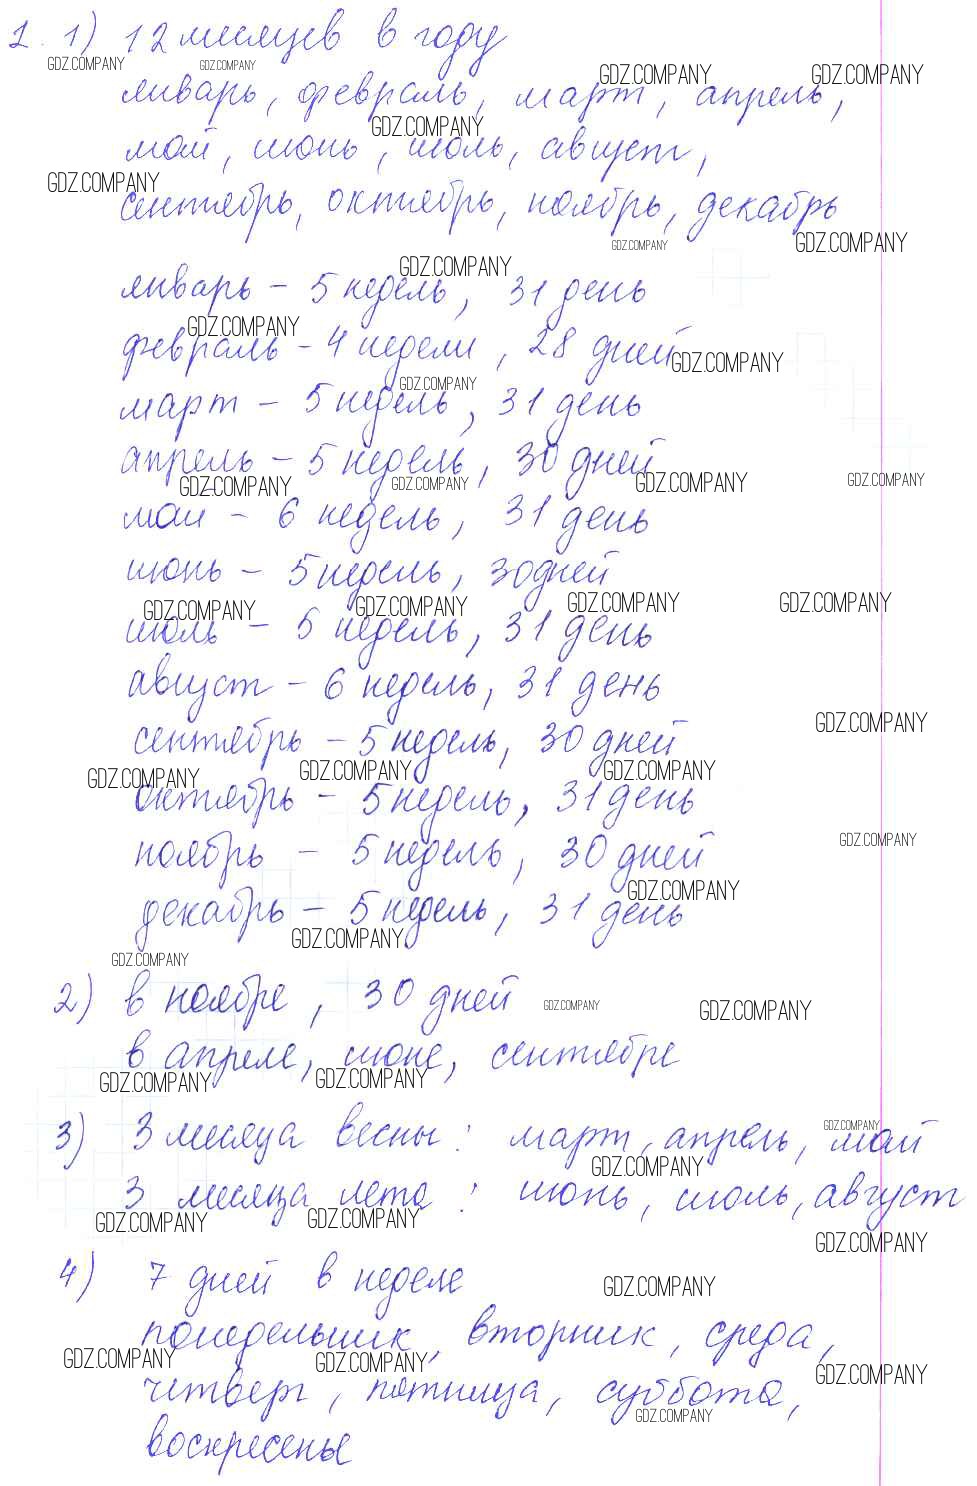 1. 1) 12 месяцев в году
GDZ.COMPANY GDZ.COMPANY GDZ.COMPANY GDZ.COMPANY
январь, февраль, март, апрель,
GDZ.COMPANY
май, июнь, июль, август,
GDZ.COMPANY
сентябрь, октябрь, ноябрь, декабрь
GDZ.COMPANY GDZ.COMPANY
GDZ.COMPANY
январь - 5 недель, 31 день
GDZ.COMPANY
февраль - 4 недели, 28 дней
GDZ.COMPANY
GDZ.COMPANY
март - 5 недель, 31 день
апрель - 5 недель, 30 дней
GDZ.COMPANY GDZ.COMPANY GDZ.COMPANY GDZ.COMPANY
май - 6 недель, 31 день
июнь - 5 недель, 30 дней
GDZ.COMPANY GDZ.COMPANY GDZ.COMPANY GDZ.COMPANY
июль - 5 недель, 31 день
август - 6 недель, 31 день
GDZ.COMPANY
сентябрь - 5 недель, 30 дней
GDZ.COMPANY GDZ.COMPANY GDZ.COMPANY
октябрь - 5 недель, 31 день
GDZ.COMPANY
ноябрь - 5 недель, 30 дней
GDZ.COMPANY
декабрь - 5 недель, 31 день
GDZ.COMPANY
GDZ.COMPANY
2) в ноябре, 30 дней
GDZ.COMPANY GDZ.COMPANY
в апреле, июне, сентябре
GDZ.COMPANY GDZ.COMPANY
GDZ.COMPANY
3) 3 месяца весны: март, апрель, май
GDZ.COMPANY
3 месяца лета: июнь, июль, август
GDZ.COMPANY GDZ.COMPANY
GDZ.COMPANY
4) 7 дней в неделе
GDZ.COMPANY
понедельник, вторник, среда,
GDZ.COMPANY GDZ.COMPANY GDZ.COMPANY
четверг, пятница, суббота,
GDZ.COMPANY
воскресенье